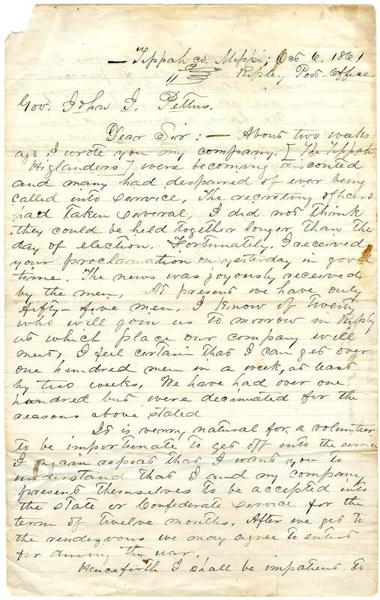 — Tippah co. Mippi; Oct 6, 1861
Ripley Post-Office
Gov. John J. Pettus.
Dear Sir: — About two weeks
ago I wrote you my company [The Tippah
Highlanders] were becoming disconted
and many had despaired of ever being
called into service, The recruiting officers
had taken several, I did not think
they could be held together longer than the
day of election. Fortunately I received
your proclamation on yesterday in good
time. The news was joyously received
by the men. At present we have only
fifty-five men. I know of Twenty
who will join us to morrow in Ripley
at which place our company will
meet, I feel certain that I can get over
one hundred men in a week, at least
by two weeks. We have had over one
hundred but were decimated for the
reasons above stated
It is very natural for a volunteer
to be importunate to get off into the service
I again repeat that I want you to
understand that I and my company
present themselves to be accepted into
the State or Confederate service for the
term of Twelve months. After we get to
the rendezvous we may agree to enlist
for during the war.
Henceforth I shall be impatient to